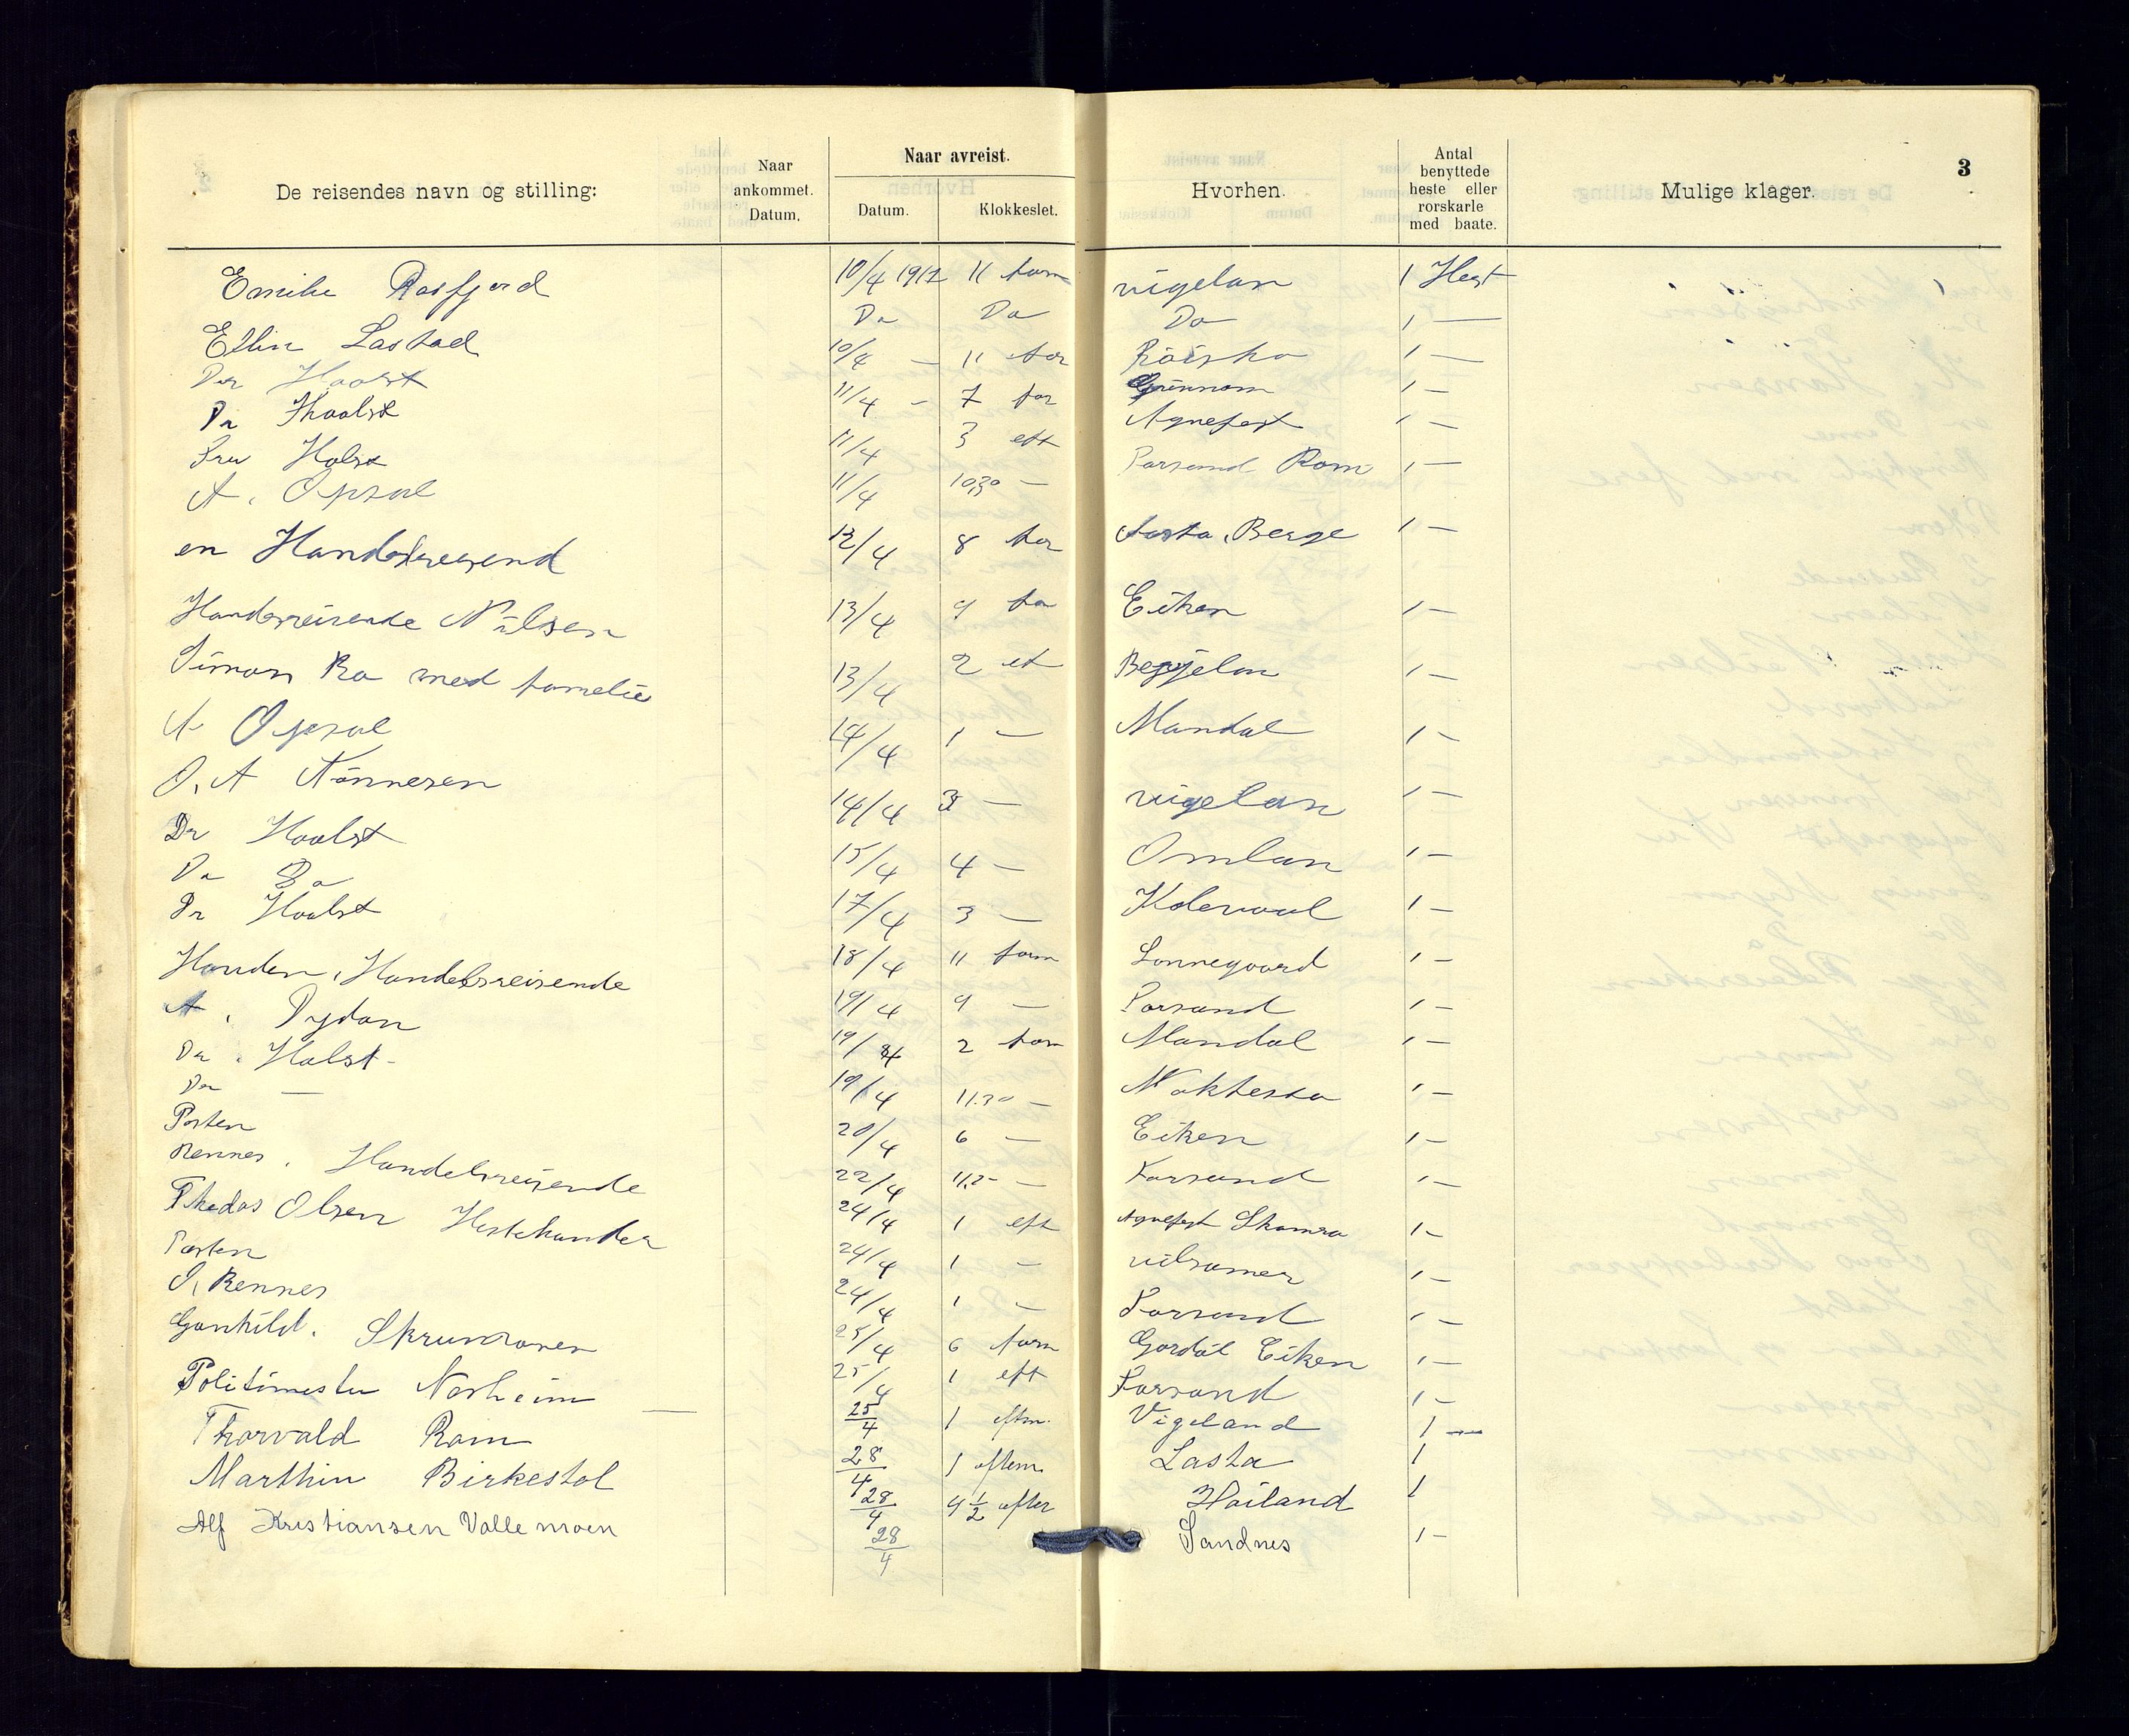 3
De reisendes navn og stilling: Naar ankommet. Datum. Naar avreist. Datum. Klokkeslet. Hvorhen. Antal benyttede heste eller rorskarle med baate. Mulige klager.
Emilie 10/4 1912 11 form vigelan 1 Hest
Ellin Lastad Do Do Do 1 —
Dr Haalst 10/4 — 11 for 1 —
Dr Haalst 11/4 - 7 for 1 —
Fru Holst 11/4 3 eft Agnefest 1 —
A. Opsal 11/4 10,30 — Forsand Rom 1 —
en Handelsreisend 12/4 8 for Lasta, Berge 1 —
Handesreisende Nilsen 13/4 9 fo Eiken 1 —
Simon Ro med familie 13/4 2 et 1 —
A Opsal 14/4 1 — Mandal 1 —
O. A Tönnesen 14/4 3 — vigelan 1 —
Dr Haalst 15/4 4 — Omlan 1 —
Do Do 17/4 3 — 1 —
Dr Haalst 18/4 11 form Lonnegaard 1 —
Handelsreisende 19/4 9 — Forsand 1 —
A. 19/4 2 form Mandal 1 —
Dr. Holst - 19/4 11.30 — 1 —
Do — 20/4 6 — Eiken 1 —
Posten 22/4 — Forsand 1 —
Rennes. Handelsreisende 24/4 1 eft Agnefest 1 —
Olsen Hestehandler 24/4 1 — 1 —
Posten 24/4 1 — Forsand 1 —
O, Rennes 25/4 6 form Eiken 1 —
Gonhild. 25/4 1 eft Forsand 1 —
Politimester Norheim — 25/4 1 eftm. Vigeland 1 —
Thorvald Rom 28/4 1 eftem. Lasta 1
Marthin Birkestol 28/4 4 1/2 efter Høiland 1
Alf Kristiansen Valle moen 28/4 Sandnes 1 —